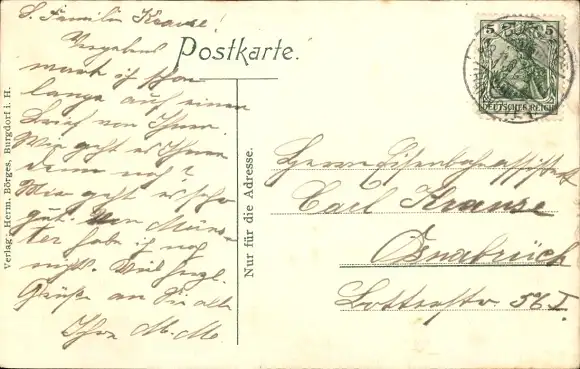 S. Familie Krause!
Vergebens
warte ich schon
lange auf einen
Brief von Ihnen.
Wie geht es Ihnen
denn noch?
Mir geht es schon
gut. Von Müns-
ter habe ich noch
nicht. Viel herzl.
Grüße an Sie alle
Ihre M. M.
Postkarte.
Verlag: Herm. Börges, Burgdorf i. H.
Nur für die Adresse.
5 5
DEUTSCHES REICH
Herrn Eisenbahnassistent
Carl Krause
Osnabrück
Lotterstr. 56 I.